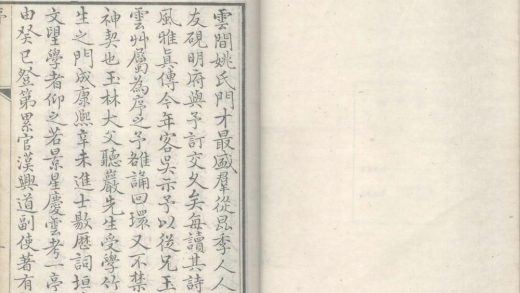 雲間姚氏門才最盛羣從昆季人人
友硯明府與予訂交久矣每讀其詩
風雅眞傳今年客吳示予以從兄玉
雲艸屬為序之予雒誦回環又不禁
神契也玉林大父聽巖先生受學竹
生之門成康熙辛未進士敭歷詞垣
文望學者仰之若景星慶雲考一亭
由癸巳登第累官漢興道副使著有